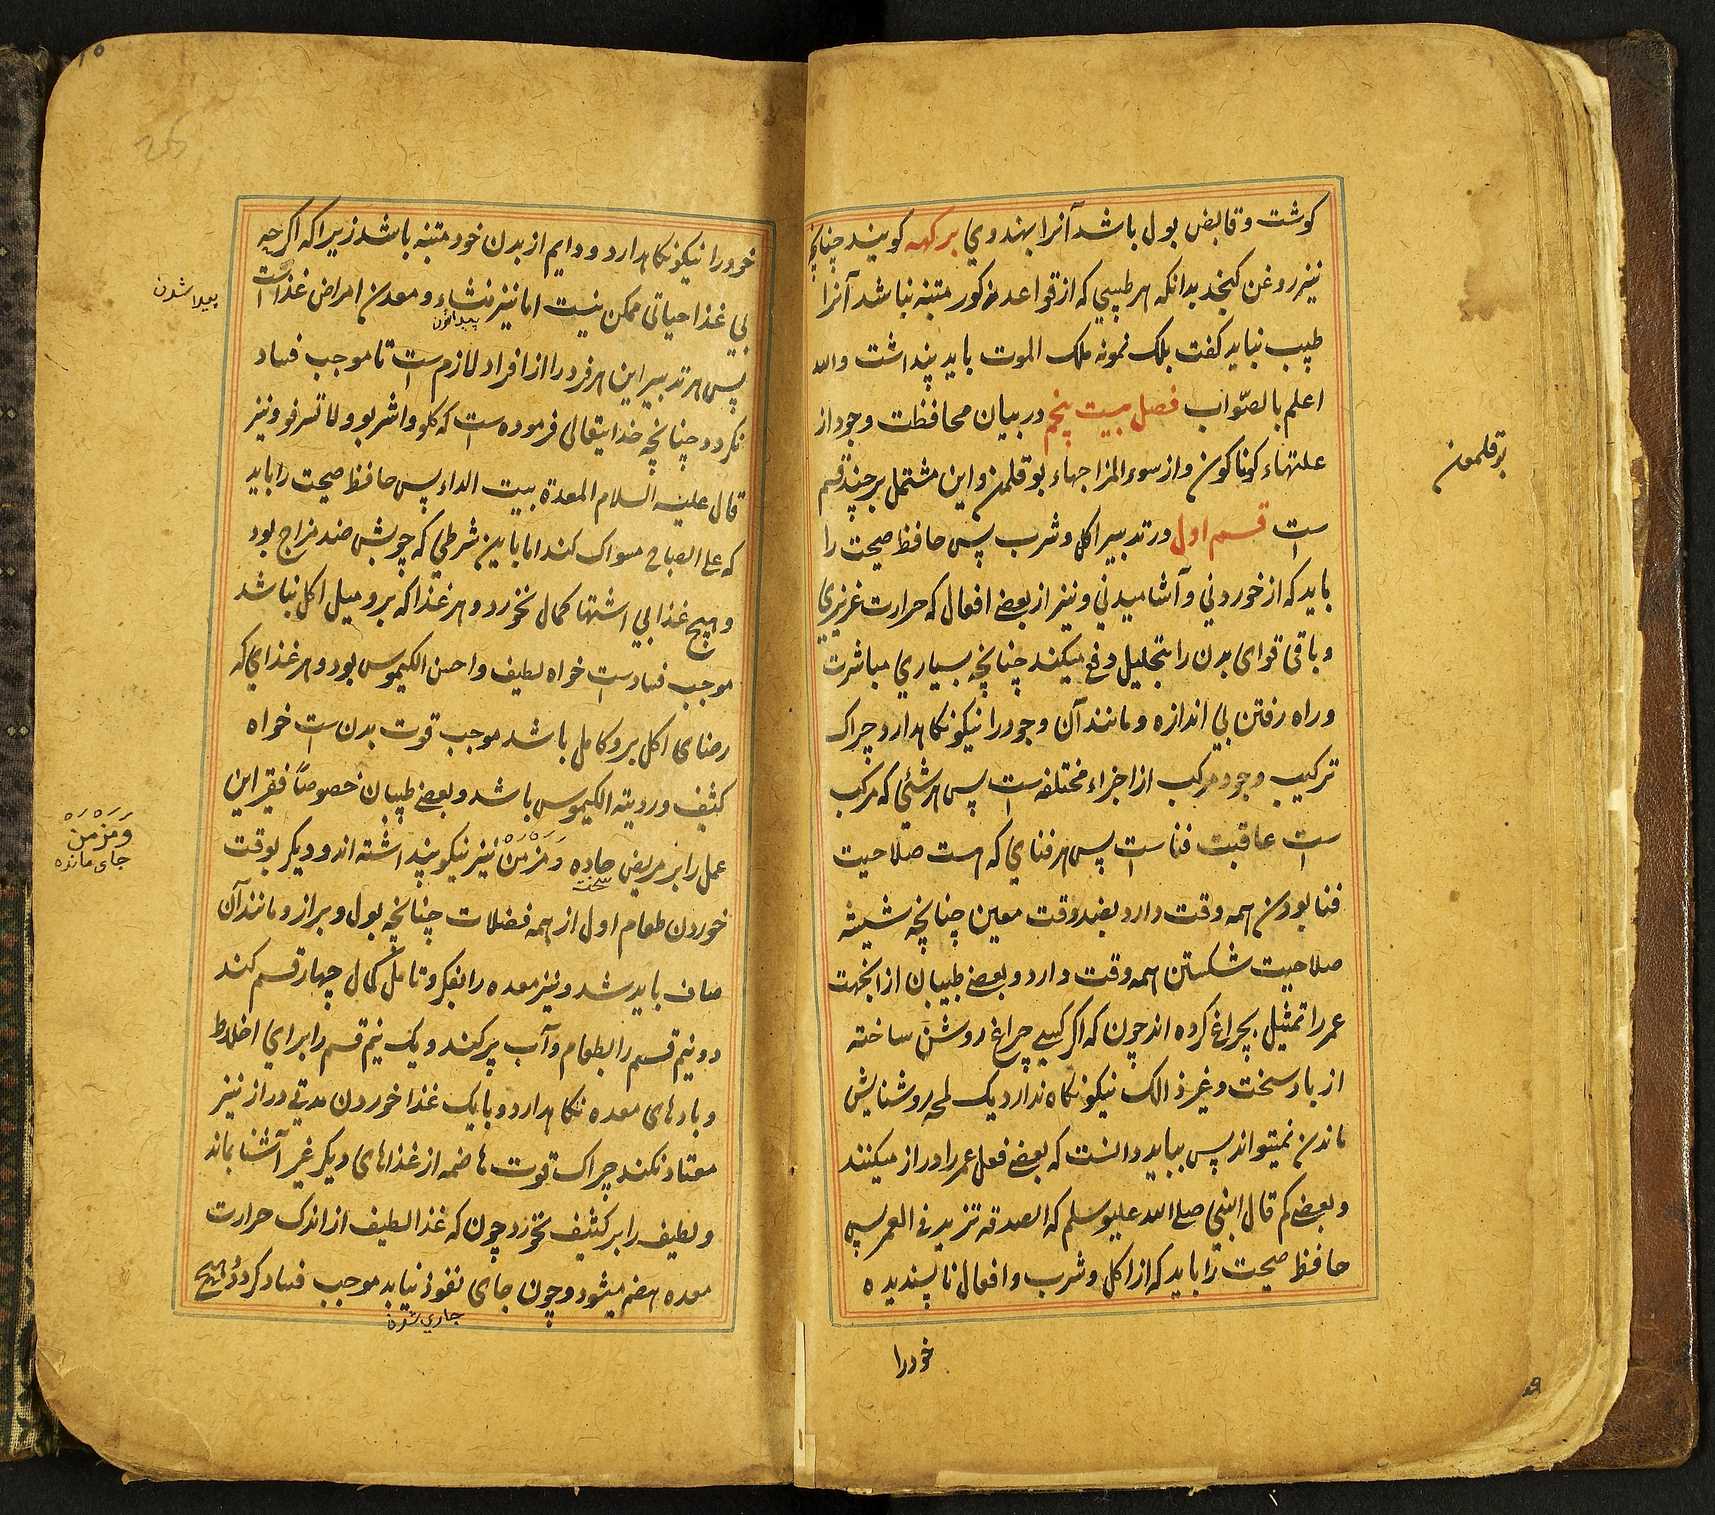 کوشت و قابض بول باشد آنرا بهندوي برکهه کویند چنانچه
نیز روغن کنجد بدانکه هر طبیبي که از قواعد مذکور متنبه نباشد آنرا
طبیب نباید کفت بلک نمونه ملک الموت باید پنداشت والله
اعلم بالصّواب فصل بیست پنجم در بیان محافظت وجود از
علتهاء کوناکون و از سوء المزاجهاء بوقلمن و این مشتمل بر چند قسم
ست قسم اول در تدبیر اکل و شرب پس حافظ صحت را
باید که از خوردني و آشامیدني و نیز از بعضے افعال که حرارت غریزي
و باقی قوای بدن را بتحلیل دفع میکند چنانچه بسیاري مباشرت
و راه رفتن بي اندازه و مانند آن وجود را نیکو نکاهدارد چراک
ترکیب وجود مرکب از اجزاء مختلفه ست پس هر شئي که مرکب
ست عاقبت فناست پس هر فناي که هست صلاحیت
فنا بودن همه وقت دارد بغیر وقت معین چنانچه شیشه
صلاحیت شکستن همه وقت دارد و بعضے طبیبان از انجهت
عمر را تمثیل بچراغ کرده اند چون که اکر کسے چراغ روشن ساخته
از باد سخت و غیر ذالک نیکو نکاه ندارد یک لمحه روشنایش
ماندن نمیتواند پس بباید دانست که بعضے فعل عمر را دراز میکنند
و بعضے کم قال النبي صلے الله علیه وسلم که الصدقه تزید في العمر پس
حافظ صحت را باید که از اکل و شرب و افعال ناپسندیده
خودرا
بوقلمون
خود را نیکو نکاهدارد و دایم از بدن خود متنبه باشد زیراکه اکرچه
بي غذا حیاتي ممکن نیست اما نیز منشاء و معدن امراض غذا ست
پیدا شدن
پس هر تدبیر این هر فرد را از افراد لازم ست تا موجب فساد
نکردد چنانچه خدایتعالی فرموده ست که کلو واشربو ولا تسرفو و نیز
قال علیه السلام المعدة بیت الداء پس حافظ صحت را باید
که علے الصباح مسواک کند اما باین شرطي که چوبش ضد مزاج بود
و هیچ غذا بي اشتها کمال نخورد و هر غذا که برو میل اکل نباشد
موجب فسادست خواه لطیف و احسن الکیموس بود و هر غذاي که
رضای اکل برو کامل باشد موجب قوت بدن ست خواه
کثیف و ردیته الکیموس باشد و بعضے طبیبان خصوصاً فقیر این
عمل را بر مریض حاده و مزمن نیز نیکو پنداشته اند و دیکر بوقت
سخت
خوردن طعام اول از همه فضلات چنانچه بول و براز و مانند آن
صاف باید شد و نیز معده را بفکر و تامل کمال چهار قسم کند
دو نیم قسم را بطعام و آب پر کند و یک نیم قسم را برای اخلاط
و بادهای معده نکاهدارد و با یک غذا خوردن مدتي دراز نیز
معتاد نکند چراک قوت هاضمه از غذاهای دیکر غیر آشنا بماند
و لطیف را بر کثیف نخورد چون که غذا لطیف از اندک حرارت
معده هضم میشود و چون جای نفوذ نیابد موجب فساد کردد و هیچ
جاري شدن
پیدا شدن
و مزمن
جای مانده
25